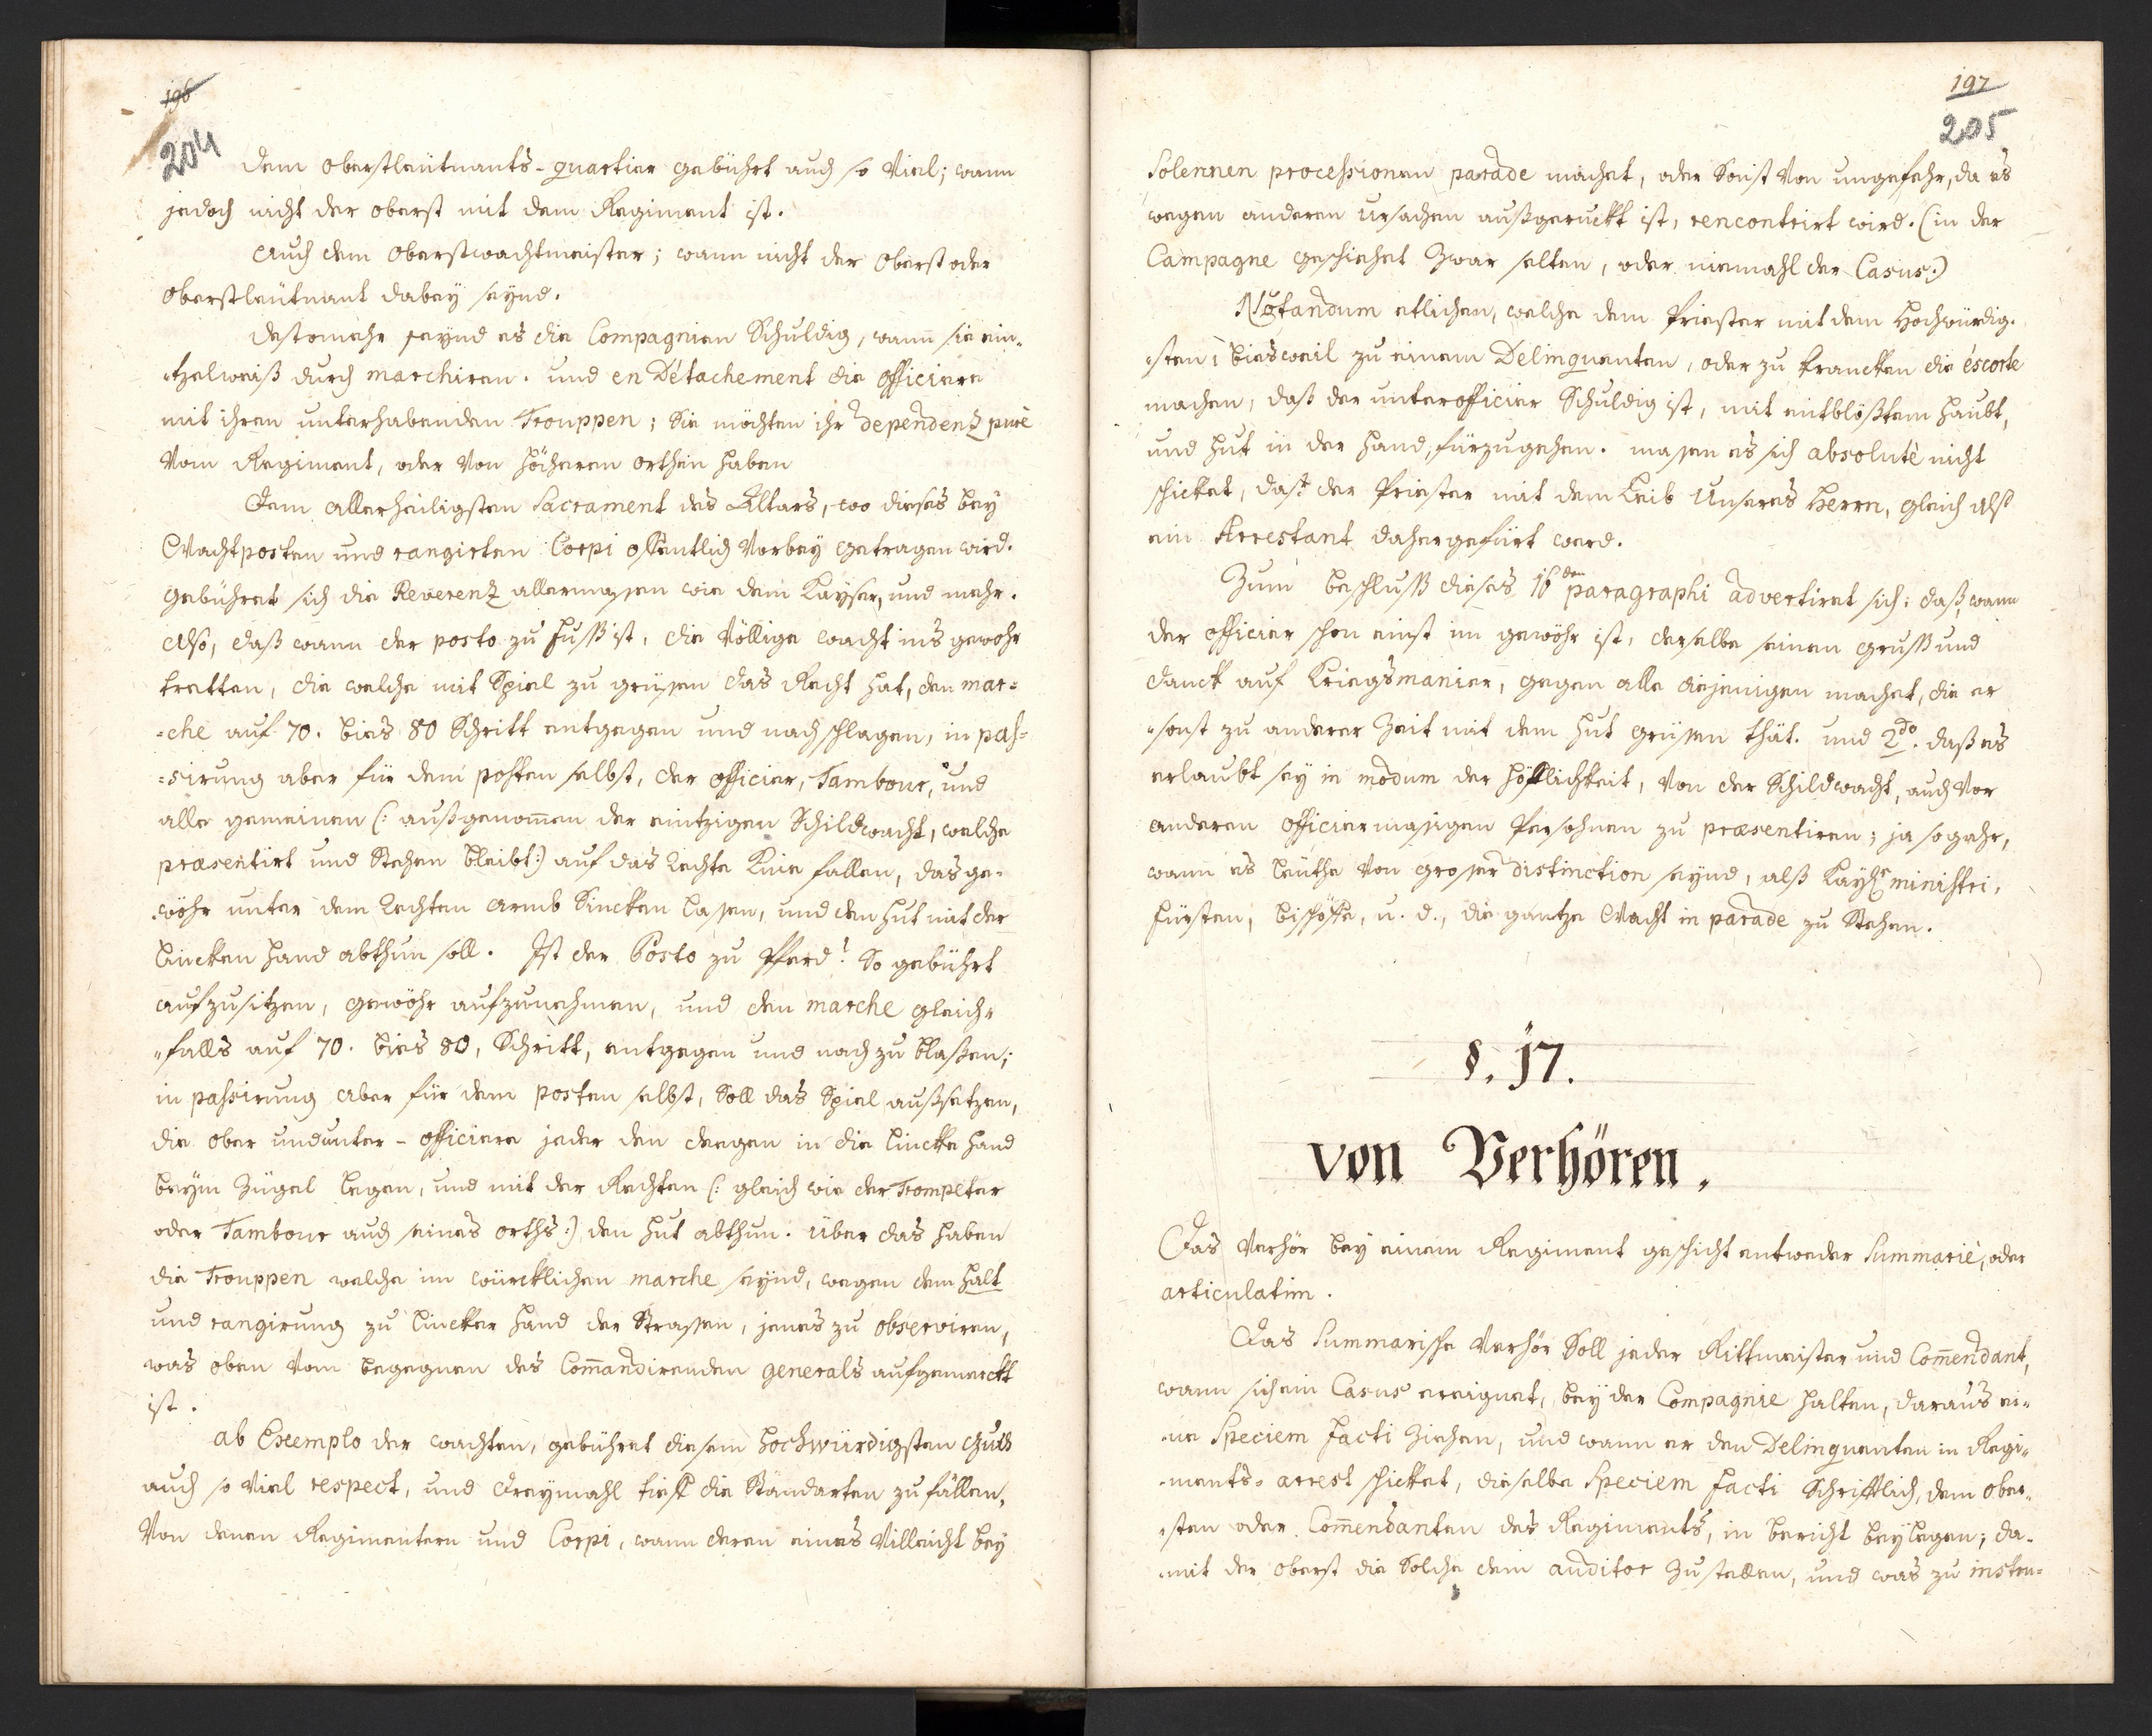 196
204
dem Oberstleütnants-quartier gebührt auch so Viel; wann
jedoch nicht der oberst mit dem Regiment ist.
Auch dem Oberstwachtmeister; wann nicht der Oberst oder
Oberstleütnant dabey seynd.
destomehr seynd es die Compagnien Schuldig, wann sie ein„
„tzelweiß durch marchiren. und en Détachement die officiere
mit ihren unterhabenden Trouppen; Sie möchten ihr dependenz purè
Vom Regiment, oder von höcheren orthen haben
Dem allerheiligsten Sacrament des Altars, wo dieses bey
Wachtposten und rangirten Corpi offentlich Vorbey getragen wird.
gebühret sich die Reverenz allermassen wie dem Kayser, und mehr.
Also, daß wann der posto zu Fuß ist, die Völlige wacht ins gewöhr
tretten, die welche mit Spiel zu grüsen das Recht hat, den mar=
=che auf 70. bies 80 Schritt entgegen und nach schlagen, in pas=
=sirung aber für dem posten selbst, der officier, Tambour, und
alle gemeinen (: außgenom̄en der eintzigen Schildwacht, welche
præsentirt und Stehen bleibt:) auf das Rechte Knie fallen, das ge„
„wöhr unter dem Rechten Armb Sincken lassen, und den Hut mit der
Lincken Hand abthun soll. Ist der Posto zu Pferd? So gebührt
aufzusitzen, gewöhr aufzunehmen, und den marche gleich„
„falls auf 70. bies 80, Schritt, entgegen und nach zu blaßen;
in passirung aber für dem posten selbst, Soll das Spiel außsetzen,
die ober und unter-officiere jeder den deegen in die Lincke Hand
beym Zügel legen, und mit der Rechten (: gleich wie der Trompeter
oder Tambour auch seines orths:) den Hut abthun. Über das haben
die Trouppen welche im würcklichen marche seynd, wegen dem halt
und rangirung zu Lincker Hand der Strassen, jenes zu observiren,
was oben vom begegnen des Com̄andirenden generals aufgemerckt
ist.
ab Exemplo der wachten, gebühret diesem Hochwürdigsten Guth
auch so Viel respect, und Dreymahl tieff die Standarten zu fällen,
Von denen Regimentern und Corpi, wann deren eines Villeicht bey
197
205
Solennen processionen parade machet, oder Sonst Von ungefehr, da es
wegen anderen ursachen außgeruckt ist, rencontrirt wird. (in der
Campagne geschiehet Zwar selten, oder niemahl der Casus:)
Notandum etlichen, welche dem Priester mit dem Hochwürdig„
„sten, biesweil zu einem Delinquenten, oder zu krancken die éscorte
machen, daß der unterofficier Schuldig ist, mit entblößtem Haubt,
und Hut in der Hand, fürzugehen. massen es sich absolutè nicht
schicket, daß der Priester mit dem Leib Unseres Herrn, gleich alß
ein Arrestant dahergefürt werd.
Zum beschluß dieses 16den paragraphi advertiret sich: daß, wann
der officier schon einst im gewöhr ist, derselbe seinen gruß und
danck auf Kriegsmanier, gegen alle diejenigen machet, die er
„sonst zu anderer Zeit mit dem Hut grüsen thät. und 2do. daß es
erlaubt sey in modum der Höfflichkeit, Von der Schildwacht, auch Vor
anderen officiermasigen Persohnen zu præsentiren; ja sogahr,
wann es Leuthe Von groser distinction seynd, alß Kayße ministri,
fürsten, bischöffe, u. d., die gantze Wacht in parade zu Stehen.
§. 17.
von Verhören.
Das Verhör bey einem Regiment geschicht entweder Summariè, oder
articulatim.
Das Summarische Verhör Soll jeder Rittmeister und Com̄endant,
wann sich ein Casus ereignet, bey der Compagnie halten, daraus ei„
„ne Speciem facti Ziehen, und wann er den Delinquenten in Regi„
„ments-arrest schicket, dieselbe Speciem facti Schrifftlich, dem Ober„
„sten oder Com̄endanten des Regiments, in bericht beylegen; da„
„mit der Oberst die Solche dem auditor Zustellen, und was zu instru=